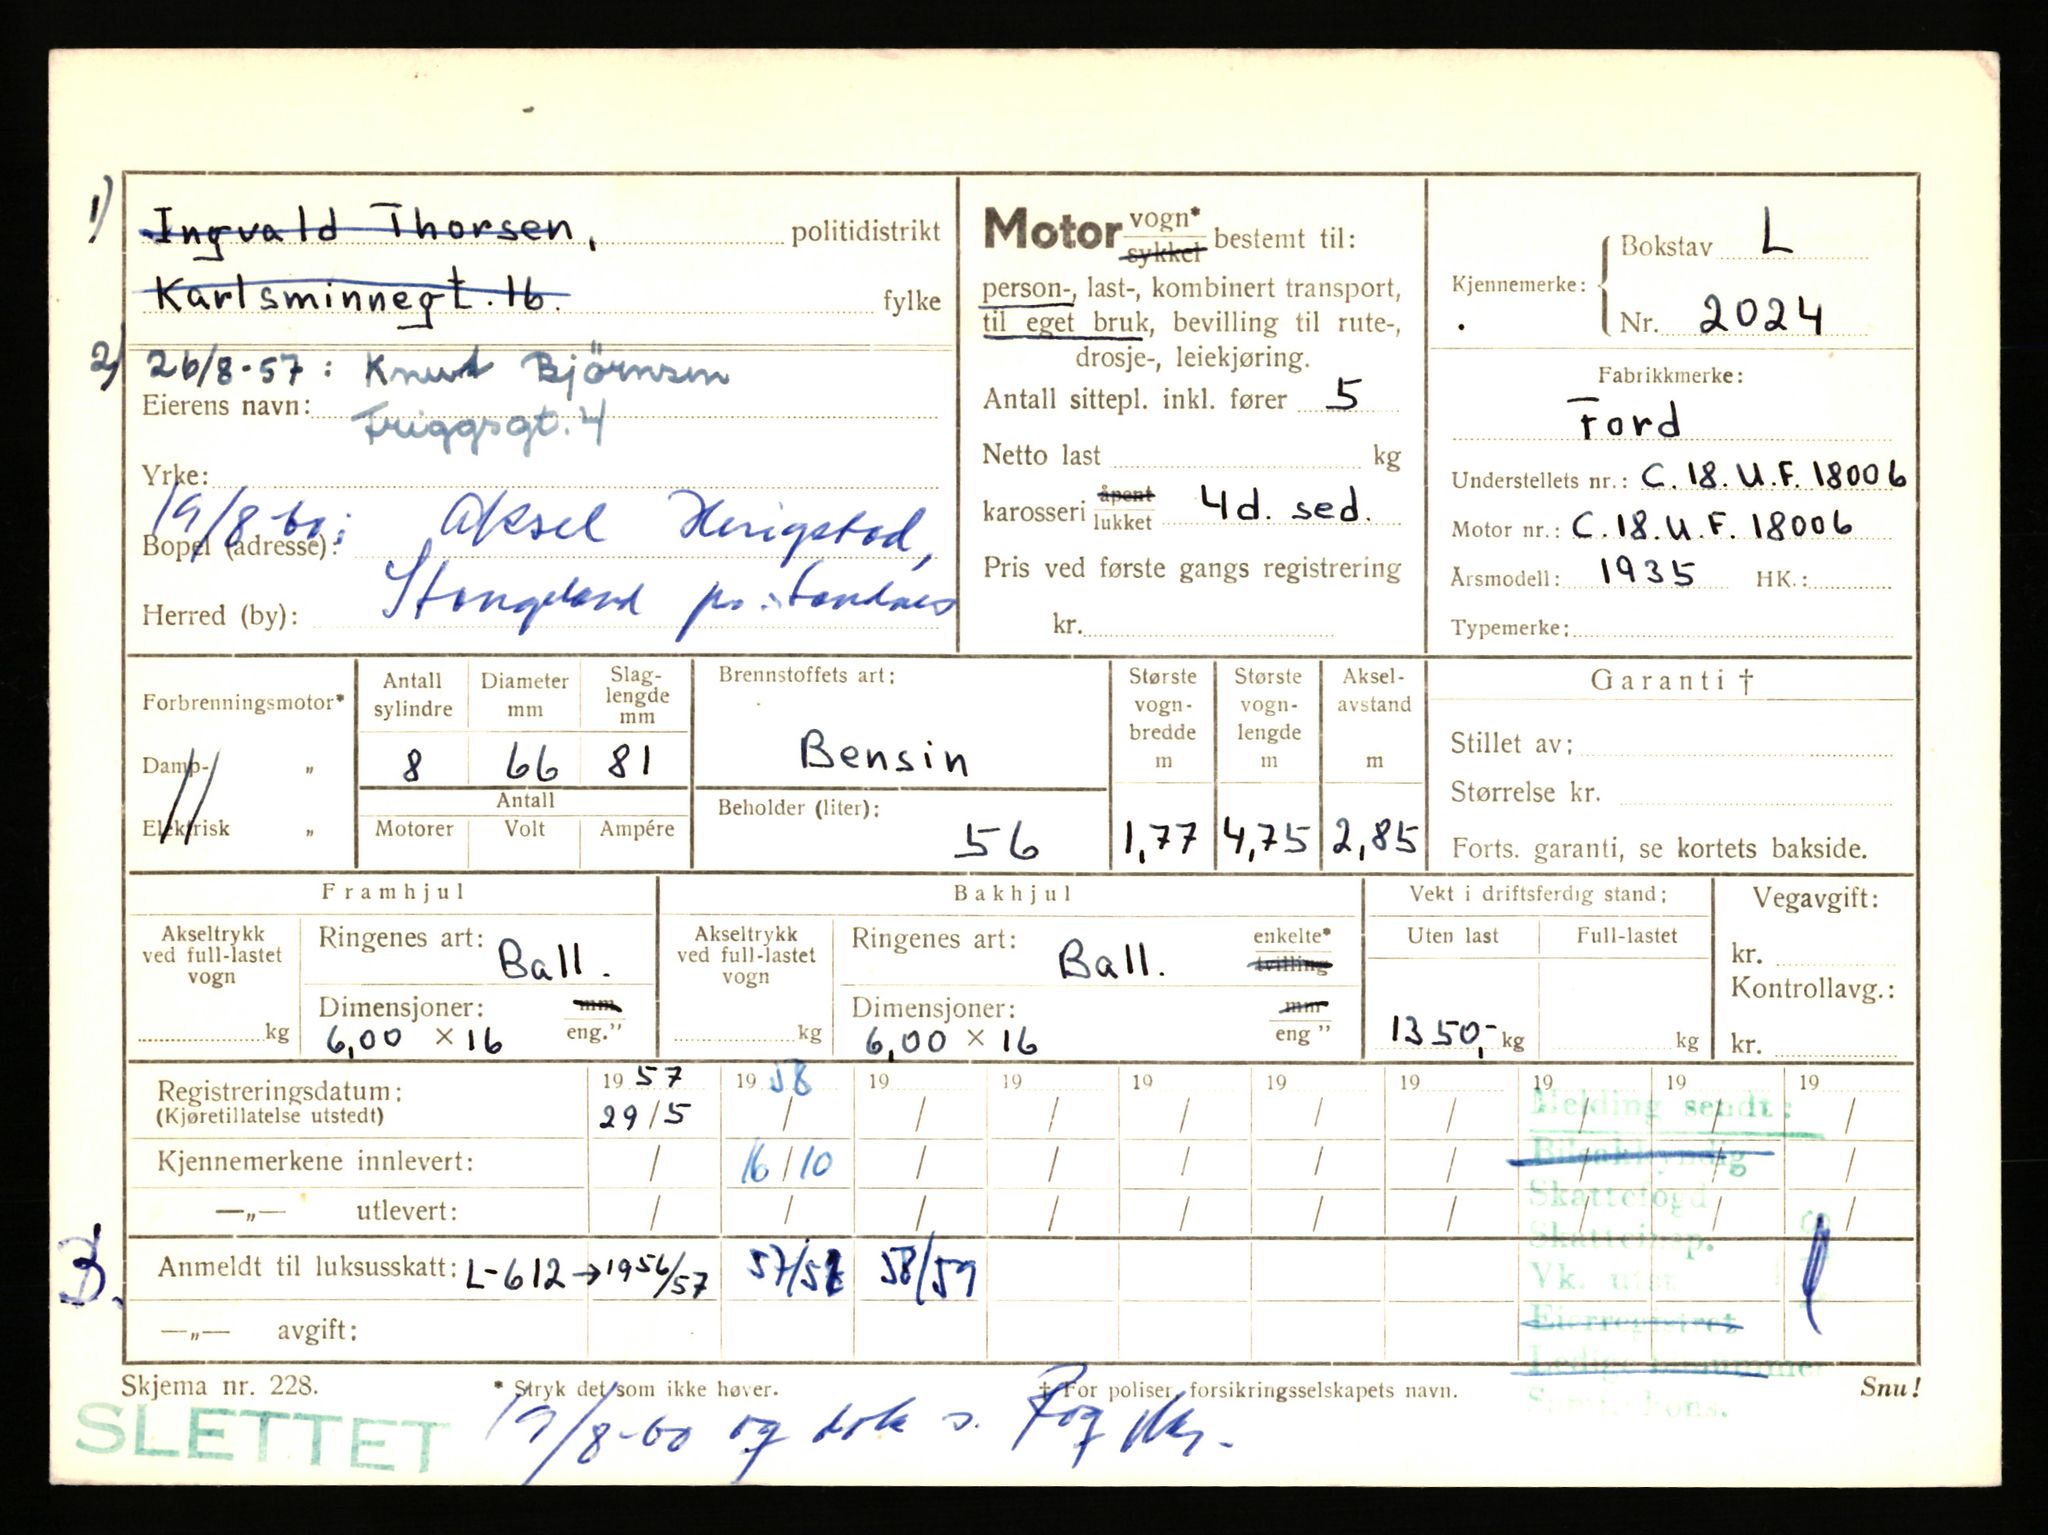 1) Ingvald Thorsen, politidistrikt
Karlsminnegt. 16. fylke
2) 26/8-57: Knut Björnsen
Eierens navn: Friggsgt. 4
Yrke:
19/8-60: Aksel Herigstad,
Bopel (adresse):
Stangeland pr. Sandnes
Herred (by):
Motor vogn* sykkel bestemt til:
person-, last-, kombinert transport,
til eget bruk, bevilling til rute-,
drosje-, leiekjøring.
Antall sittepl. inkl. fører 5
Netto last kg
karosseri åpent lukket 4d. sed.
Pris ved første gangs registrering
kr.
Kjennemerke: Bokstav L
Nr. 2024
Fabrikkmerke:
Ford
Understellets nr.: C.18.U.F. 18006
Motor nr.: C.18.U.F. 18006
Årsmodell: 1935 HK.:
Typemerke:
Forbrenningsmotor*
Damp- „
Elektrisk „
Antall sylindre Diameter mm Slag-lengde mm
8 66 81
Antall
Motorer Volt Ampére
Brennstoffets art:
Bensin
Beholder (liter):
56
Største vogn-bredde m
1,77
Største vogn-lengde m
4,75
Aksel-avstand m
2,85
Garanti †
Stillet av:
Størrelse kr.
Forts. garanti, se kortets bakside.
Framhjul
Akseltrykk ved full-lastet vogn
kg
Ringenes art: Ball.
Dimensjoner: mm
6,00 × 16 eng."
Bakhjul
Akseltrykk ved full-lastet vogn
kg
Ringenes art: Ball. enkelte* tvilling
Dimensjoner: mm
6,00 × 16 eng"
Vekt i driftsferdig stand:
Uten last Full-lastet
1350,- kg kg
Vegavgift:
kr.
Kontrollavg.:
kr.
Registreringsdatum: 1957 1958 19 19 19 19 19 19 19 19
(Kjøretillatelse utstedt) 29/5 / / / / / / / / /
Kjennemerkene innlevert: / 16/10 / / / / / / / /
—„— utlevert: / / / / / / / / / /
3. Anmeldt til luksusskatt: L-612 → 1956/57 57/58 58/59
—„— avgift:
Melding sendt:
Bilsakkyndig
Skattefogd
Skatteinsp.
Vk. utst.
Eierregistret
Ledige
Skjema nr. 228. * Stryk det som ikke høver. † For poliser, forsikringsselskapets navn. Snu!
SLETTET 19/8-60 og dok s. Rog